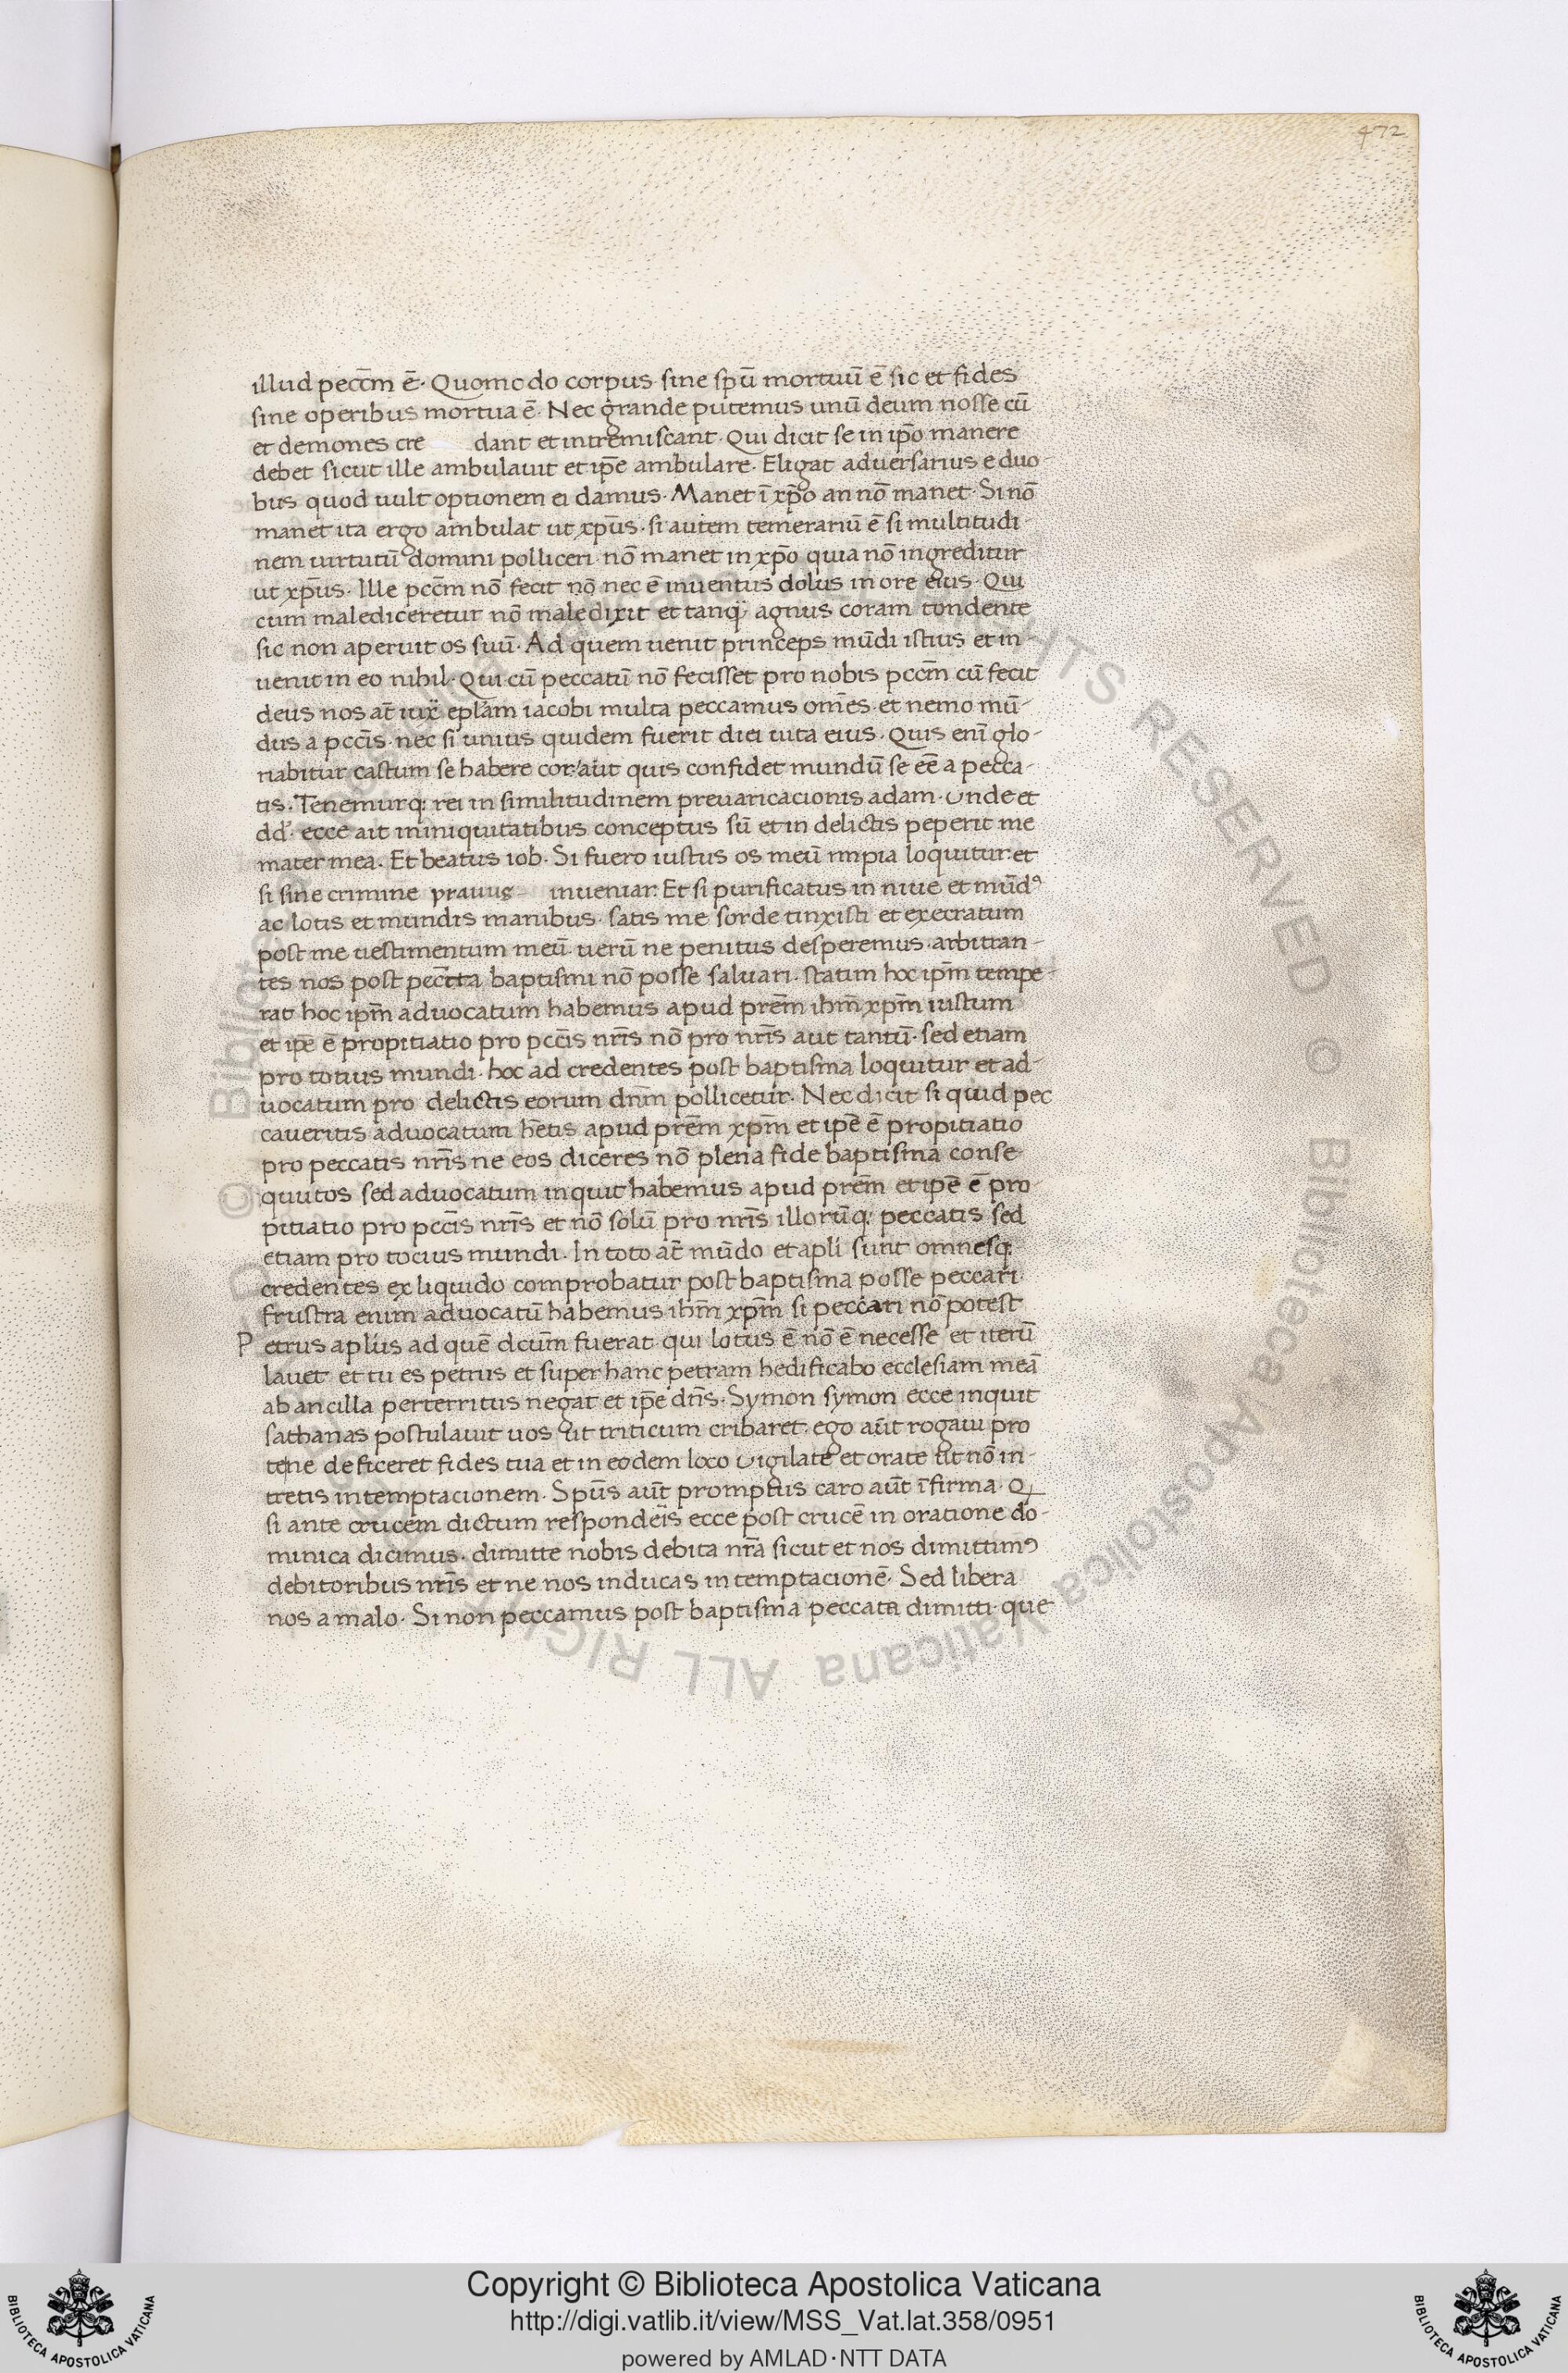 472
illud pecc̄m ē. Quomodo corpus sine sp̄u mortuū ē sic et fides
sine operibus mortua ē. Nec grande putemus unū deum nosse cū
et demones cre dant et intremiscant. Qui dicit se in ip̄o manere
debet sicut ille ambulauit et ip̄e ambulare. Eligat aduersarius e duo-
bus quod uult optionem ei damus. Manet ī xp̄o an nō manet. Si nō
manet ita ergo ambulat ut xp̄us. si autem temerariū ē si multitudi-
nem uirtutū domini polliceri nō manet in xp̄o quia nō ingreditur
ut xp̄us. Ille pcc̄m nō fecit nō nec ē inuentus dolus in ore eius. Qui
cum malediceretur nō maledixit et tanq̄ agnus coram tondente
sic non aperuit os suū. Ad quem uenit princeps mūdi istius et in-
uenit in eo nihil. Qui cū peccatū nō fecisset pro nobis pcc̄m cū fecit
deus nos at̄ iux̄ ep̄lam iacobi multa peccamus om̄es. et nemo mū-
dus a pcc̄is. nec si unius quidem fuerit diei uita eius. Quis enī glo-
riabitur castum se habere cor. aut quis confidet mundū se eē a pecca-
tis. Tenemurq; rei in similitudinem preuaricacionis adam. Unde et
dd̄. ecce ait in iniquitatibus conceptus sū et in delictis peperit me
mater mea. Et beatus iob. Si fuero iustus os meū impia loquitur. et
si sine crimine prauus inueniar. Et si purificatus in niue et mūdꝰ
ac lotis et mundis manibus. satis me sorde tinxisti et execratum
post me uestimentum meū. uerū ne penitus desperemus. arbitran-
tes nos post pecc̄ta baptismi nō posse saluari. statim hoc ip̄m tempe-
rat hoc ip̄m aduocatum habemus apud pr̄em ih̄m xp̄m iustum
et ip̄e ē propitiatio pro pcc̄is nr̄is nō pro nr̄is aut tantū. sed etiam
pro totius mundi. hoc ad credentes post baptisma loquitur et ad-
uocatum pro delictis eorum dn̄m pollicetur. Nec dicit si quid pec
caueritis aduocatum h̄etis apud pr̄em xp̄m et ip̄e ē propitiatio
pro peccatis nr̄is ne eos diceres nō plena fide baptisma conse
quutos sed aduocatum inquit habemus apud pr̄em et ip̄e ē pro-
pitiatio pro pcc̄is nr̄is et nō solū pro nr̄is illorūq; peccatis sed
etiam pro tocius mundi. In toto at̄ mūdo et apl̄i sunt omnesq;
credentes ex liquido comprobatur post baptisma posse peccari.
frustra enim aduocatū habemus ih̄m xp̄m si peccari nō potest
Petrus apl̄us ad quē dc̄um fuerat qui lotus ē nō ē necesse et iterū
lauet et tu es petrus et super hanc petram hedificabo ecclesiam meā
ab ancilla perterritus negat et ip̄e dn̄s. Symon symon ecce inquit
sathanas postulauit uos ut triticum cribaret. ego aūt rogaui pro
te ne deficeret fides tua et in eodem loco uigilate et orate ut nō in-
tretis in temptacionem. Sp̄us aūt promptus caro aūt īfirma. Q
si ante crucem dictum respondeis ecce post crucē in oratione do-
minica dicimus. dimitte nobis debita nr̄a sicut et nos dimittimꝰ
debitoribus nr̄is et ne nos inducas in temptacionē. Sed libera
nos a malo. Si non peccamus post baptisma peccata dimitti. que
© Biblioteca Apostolica Vaticana ALL RIGHTS RESERVED © Biblioteca Apostolica Vaticana ALL RIGHTS
Copyright © Biblioteca Apostolica Vaticana
http://digi.vatlib.it/view/MSS_Vat.lat.358/0951
powered by AMLAD·NTT DATA
BIBLIOTECA APOSTOLICA VATICANA
BIBLIOTECA APOSTOLICA VATICANA